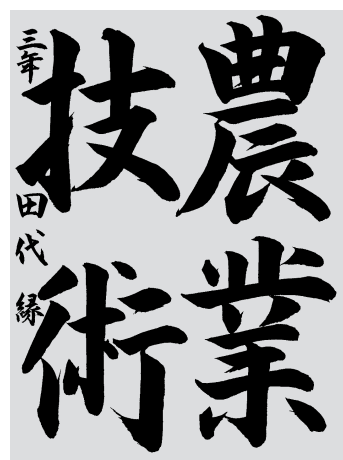 農業
技術
三年 田代 縁